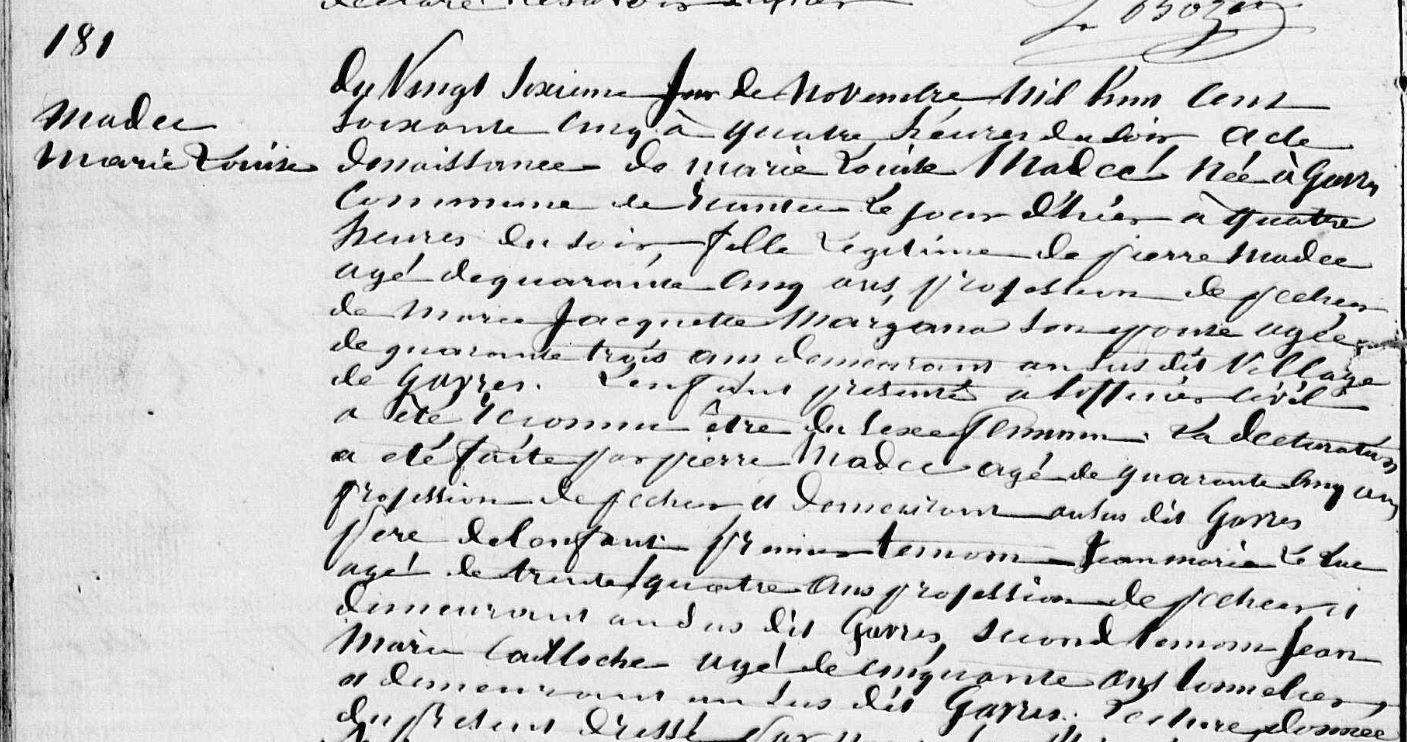 181
Madec
Marie Louise
du Vingt Sixieme Jour de Novembre Mil huit Cent
Soixante Cinq à quatre heures du Soir Acte
de naissance de marie Louise Madec Née à Gavres
Commune de le jour d'hier à quatre
heures du soir, fille légitime de pierre Madec
agé de quarante Cinq ans, profession de pecheur
de Marie Jacquette Margana Son epouse agée
de quarante trois ans demeurant au Sus dit Village
de Gavres. L'enfant présenté a l'officier Civil
a été reconnu être du Sexe feminin. La declaration
a été faite par pierre Madec agé de quarante Cinq ans
profession de pecheur et demeurant au sus dit Gavres
pere de l'enfant premier temoin Jean marie Le Luc
agé de trente quatre ans profession de pecheur et
demeurant au Sus dit Gavres, Second temoin Jean
Marie agé de cinquante ans tonnelier
et demeurant au Sus dit Gavres. Lecture donnée
du present dressé par